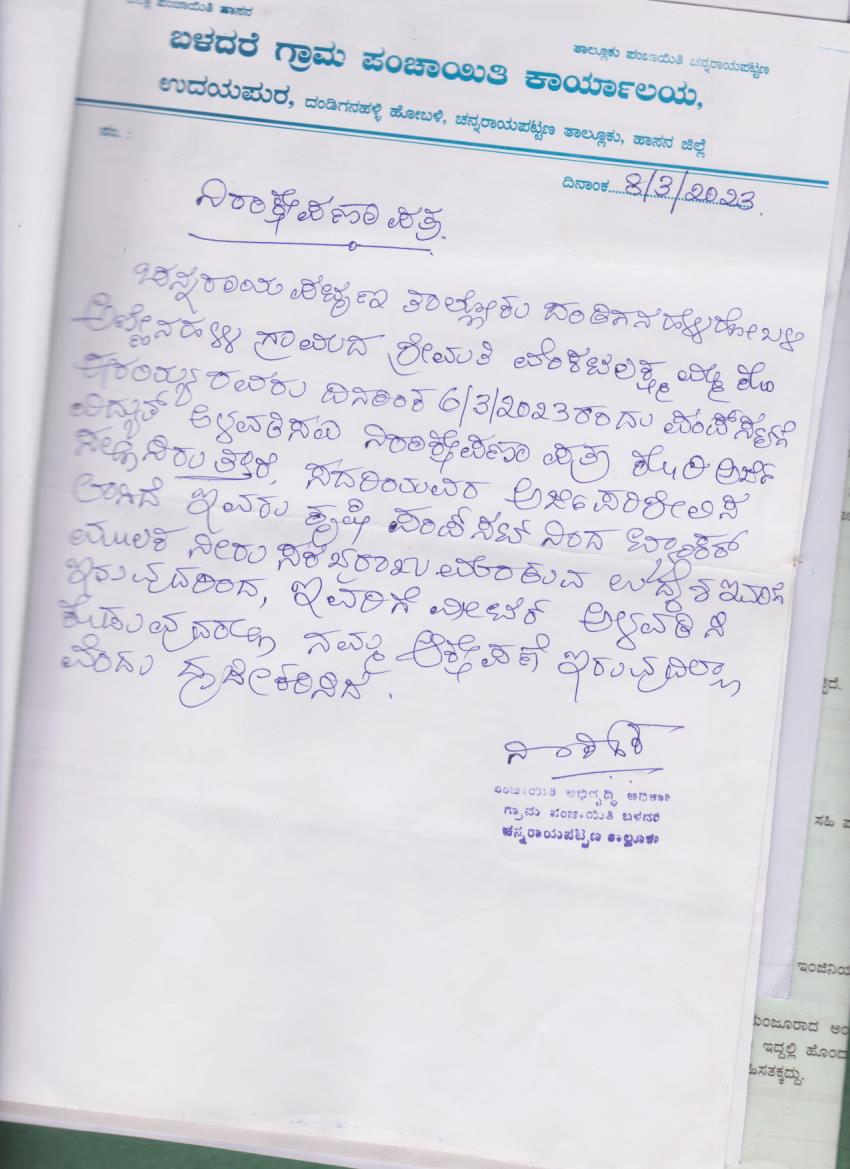 ಪಂಚಾಯಿತಿ ಹಾಸನ
ತಾಲ್ಲೂಕು ಪಂಚಾಯಿತಿ ಚನ್ನರಾಯಪಟ್ಟಣ
ಬಳದರೆ ಗ್ರಾಮ ಪಂಚಾಯಿತಿ ಕಾರ್ಯಾಲಯ,
ಉದಯಪುರ, ದಂಡಿಗನಹಳ್ಳಿ ಹೋಬಳಿ, ಚನ್ನರಾಯಪಟ್ಟಣ ತಾಲ್ಲೂಕು, ಹಾಸನ ಜಿಲ್ಲೆ
ದಿನಾಂಕ 8/3/2023.
ನಿರಾಕ್ಷೇಪಣಾ ಪತ್ರ.
ಚನ್ನರಾಯಪಟ್ಟಣ ತಾಲ್ಲೋಕು ದಂಡಿಗನಹಳ್ಳಿ ಹೋಬಳಿ
ಗ್ರಾಮದ ಶ್ರೀಮತಿ ವೆಂಕಟಲಕ್ಷ್ಮಮ್ಮ ಕೋಂ
ರವರು ದಿನಾಂಕ 6/3/2023 ರಂದು ಪಂಪ್‌ಸೆಟ್ಟಿಗೆ
ವಿದ್ಯುತ್ ಅಳವಡಿಸಲು ನಿರಾಕ್ಷೇಪಣಾ ಪತ್ರ ಕೋರಿ ಅರ್ಜಿ
ಸಲ್ಲಿಸಿರುತ್ತಾರೆ, ಸದರಿಯವರ ಅರ್ಜಿ ಪರಿಶೀಲಿಸ
ಲಾಗಿದೆ ಇವರು ಕೃಷಿ ಪಂಪ್ ಸೆಟ್ ನಿಂದ ಟ್ಯಾಂಕರ್
ಮುಲಕ ನೀರು ಸರಬರಾಜು ಮಾಡುವ ಉದ್ದೇಶ ಇವರಿಗೆ
ಇರುವುದರಿಂದ, ಇವರಿಗೆ ಮೀಟರ್ ಅಳವಡಿಸಿ
ಕೊಡುವುದರಲ್ಲಿ ನಮ್ಮ ಆಕ್ಷೇಪಣೆ ಇರುವುದಿಲ್ಲಾ
ವೆಂದು ದೃಢೀಕರಿಸಿದೆ.
ಪಂಚಾಯಿತಿ ಅಭಿವೃದ್ಧಿ ಅಧಿಕಾರಿ
ಗ್ರಾಮ ಪಂಚಾಯಿತಿ ಬಳದರೆ
ಚನ್ನರಾಯಪಟ್ಟಣ ತಾಲ್ಲೂಕು
ಸಹಿ
ಮಂಜೂರಾದ
ಇದ್ದಲ್ಲಿ